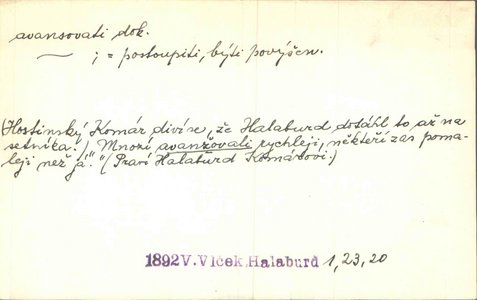 avansovati dok.
— ; = postoupiti, býti povýšen.
(Hostinský Komár diví se, že Halaburd dotáhl to až na
setníka.) Mnozí avanžovali rychleji, někteří zas poma-
leji než já." (Praví Halaburd Komárovi.)
1892 V. Vlček, Halaburd 1, 23, 20